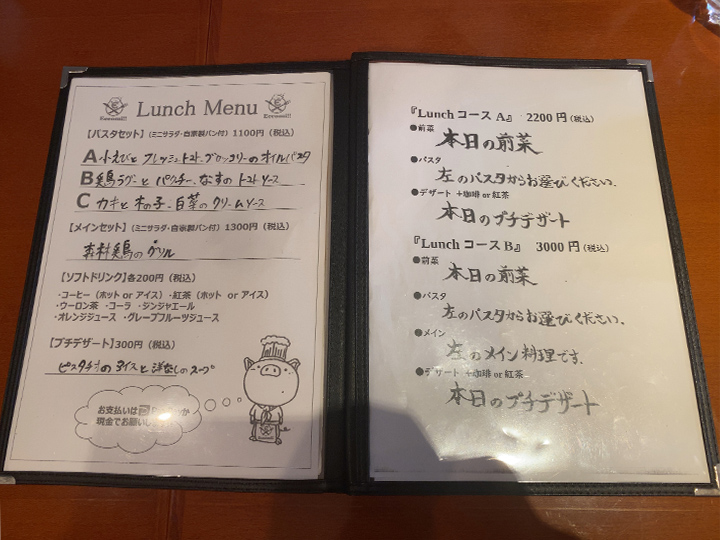 Lunch Menu
【パスタセット】(ミニサラダ・自家製パン付) 1100円(税込)
A 小えびとフレッシュトマト.ブロッコリーのオイルパスタ
B 鶏ラグーとパクチー.なすのトマトソース
C カキと木の子.白菜のクリームソース
【メインセット】(ミニサラダ・自家製パン付) 1300円(税込)
森林鶏のグリル
【ソフトドリンク】各200円(税込)
・コーヒー(ホット or アイス)・紅茶(ホット or アイス)
・ウーロン茶 ・コーラ ・ジンジャエール
・オレンジジュース ・グレープフルーツジュース
【プチデザート】300円(税込)
ピスタチオのアイスと洋なしのスープ
お支払いは
現金でお願いし
『Lunch コース A』 2200円(税込)
●前菜
本日の前菜
●パスタ
左のパスタからお選びください.
●デザート +珈琲 or 紅茶
本日のプチデザート
『Lunch コース B』 3000円(税込)
●前菜
本日の前菜
●パスタ
左のパスタからお選びください.
●メイン
左のメイン料理です.
●デザート +珈琲 or 紅茶
本日のプチデザート